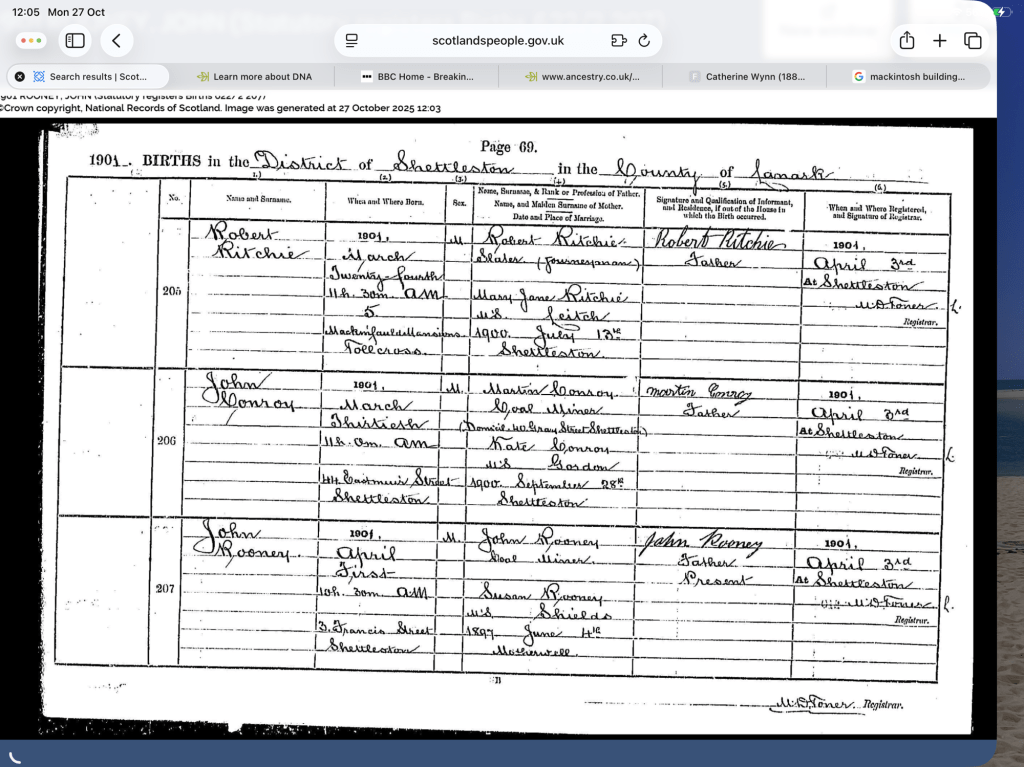 12:05 Mon 27 Oct
scotlandspeople.gov.uk
Search results | Scot...
Learn more about DNA
BBC Home - Breakin...
www.ancestry.co.uk/...
Catherine Wynn (188...
mackintosh building...
©Crown copyright, National Records of Scotland. Image was generated at 27 October 2025 12:03
Page 69.
1901. BIRTHS in the District of Shettleston in the County of Lanark
(1.) (2.) (3.) (4.) (5.) (6.)
No.
Name and Surname.
When and Where Born.
Sex.
Name, Surname, & Rank or Profession of Father.
Name, and Maiden Surname of Mother.
Date and Place of Marriage.
Signature and Qualification of Informant,
and Residence, if out of the House in
which the Birth occurred.
When and Where Registered,
and Signature of Registrar.
205
Robert
Ritchie
1901,
March
Twenty-fourth
11h. 30m. AM
5.
Mansions.
Tollcross.
M.
Robert Ritchie
Slater (Journeyman)
Mary Jane Ritchie
M.S. Leitch
1900. July 13th
Shettleston.
Robert Ritchie
Father
1901,
April 3rd
At Shettleston
M. D. Toner.
Registrar.
206
John
Conroy
1901,
March
Thirtieth
11h. 0m. AM
44 Eastmuir Street
Shettleston
M.
Martin Conroy
Coal Miner
(Domicile 40 Gray Street Shettleston)
Kate Conroy
M.S. Gordon
1900. September 28th
Shettleston
Martin Conroy
Father
1901,
April 3rd
At Shettleston
M. D. Toner.
Registrar.
207
John
Rooney.
1901,
April
First
10h. 30m. AM
3. Francis Street
Shettleston
M.
John Rooney
Coal Miner.
Susan Rooney
M.S. Shields
1897. June 4th
Motherwell.
John Rooney
Father
Present
1901,
April 3rd
At Shettleston
M. D. Toner.
Registrar.
M. D. Toner. Registrar.